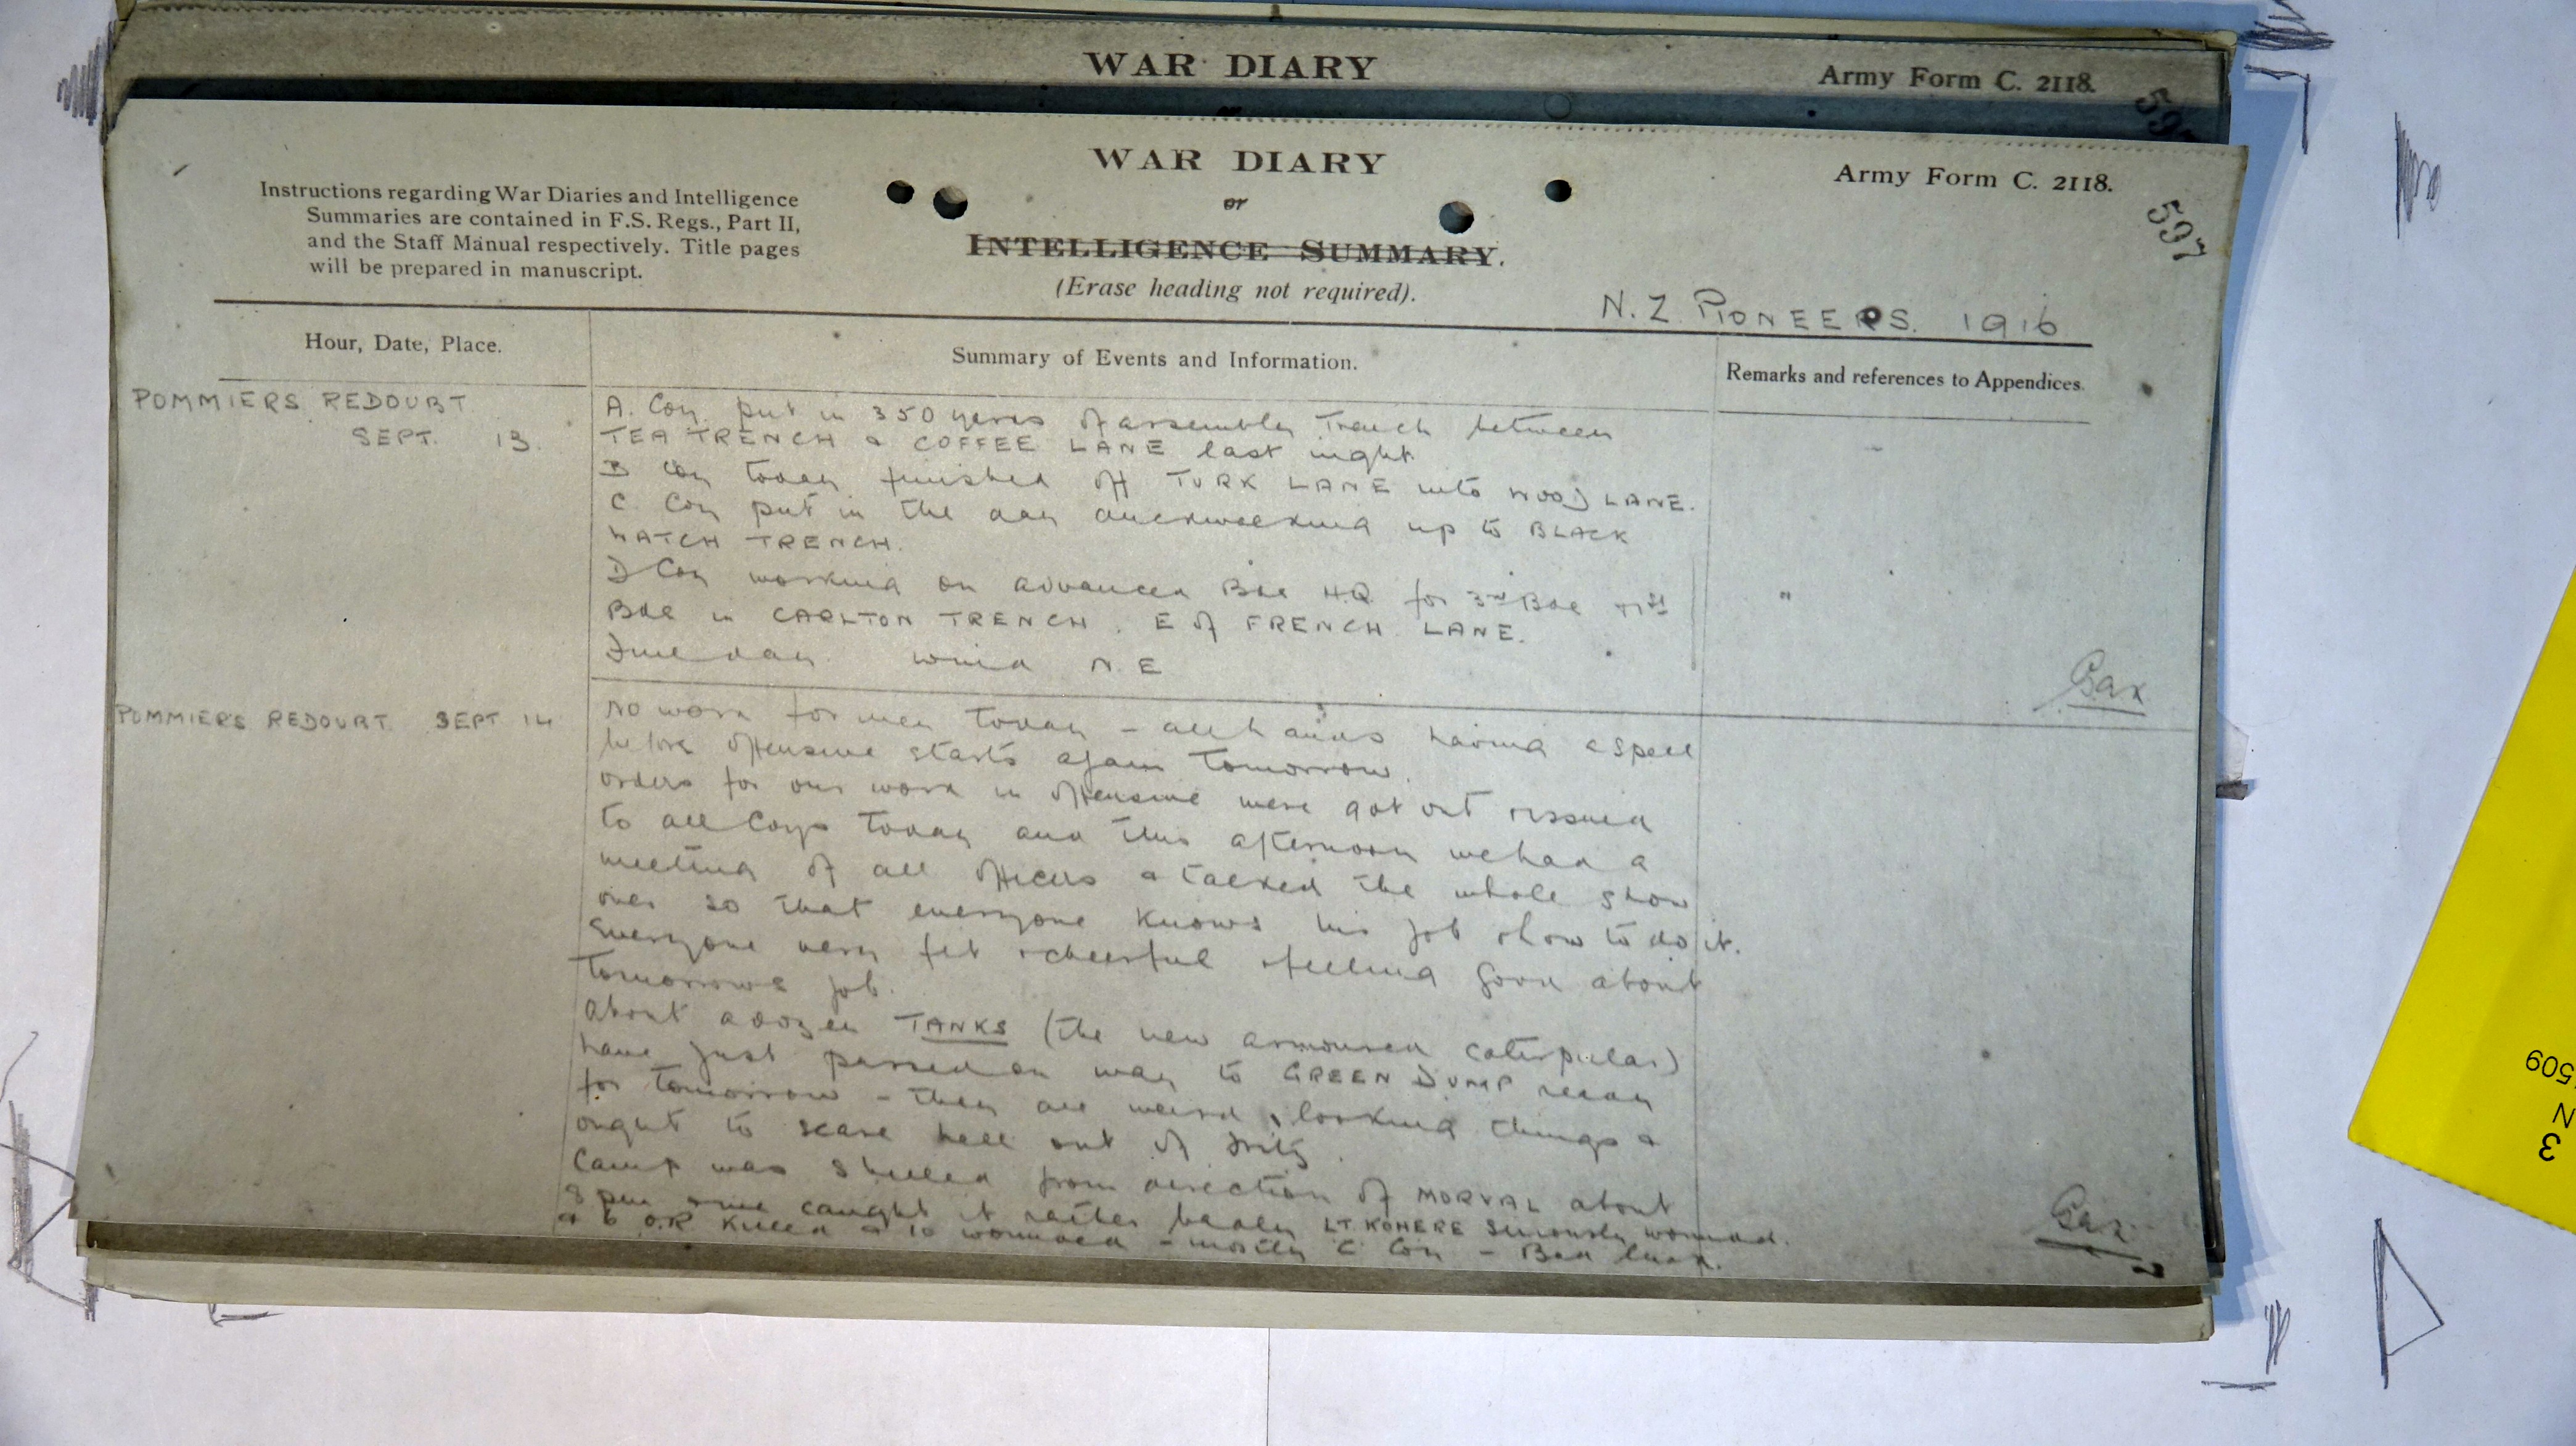 WAR DIARY
Army Form C. 2118.
597
WAR DIARY
or
INTELLIGENCE SUMMARY.
(Erase heading not required).
Army Form C. 2118.
597
Instructions regarding War Diaries and Intelligence
Summaries are contained in F.S. Regs., Part II,
and the Staff Manual respectively. Title pages
will be prepared in manuscript.
N.Z. PIONEERS. 1916
Hour, Date, Place.
Summary of Events and Information.
Remarks and references to Appendices.
POMMIERS REDOUBT
SEPT. 13.
A. Coy. put in 350 yards of assembly Trench between
TEA TRENCH & COFFEE LANE last night.
B Coy today finished off TURK LANE into WOOD LANE.
C. Coy put in the day duckwalking up to BLACK
WATCH TRENCH.
D Coy working on advanced Bde H.Q. for 3rd Bde & 1st
Bde in CARLTON TRENCH. E of FRENCH LANE.
Fine day. wind N.E
POMMIERS REDOUBT. SEPT 14
No work for men today - all hands having a spell
before offensive starts again tomorrow.
orders for our work in offensive were got out & issued
to all Coys today and this afternoon we had a
meeting of all officers & talked the whole show
over so that everyone knows his job & how to do it.
Everyone very fit & cheerful & feeling good about
tomorrows job.
About a dozen TANKS (the new armoured caterpillar)
have just passed on way to GREEN DUMP ready
for tomorrow - they are weird looking things &
ought to scare hell out of Fritz.
Camp was shelled from direction of MORVAL about
8 pm & we caught it rather badly LT. KOHERE seriously wounded.
& 6 O.R killed & 10 wounded - mostly C Coy - Bad luck.
7
509
N
3